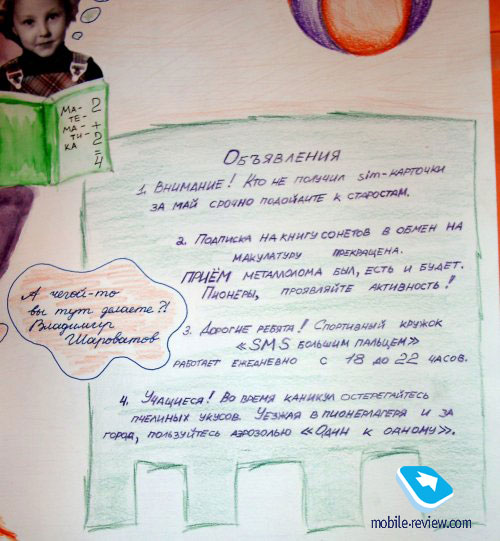 МА-
ТЕ-
МА-
ТИ-
КА
2
+
2
=
4
ОБЪЯВЛЕНИЯ
1. ВНИМАНИЕ! КТО НЕ ПОЛУЧИЛ SIM-КАРТОЧКИ
ЗА МАЙ СРОЧНО ПОДОЙДИТЕ К СТАРОСТАМ.
2. ПОДПИСКА НА КНИГУ СОНЕТОВ В ОБМЕН НА
МАКУЛАТУРУ ПРЕКРАЩЕНА.
ПРИЁМ МЕТАЛЛОЛОМА БЫЛ, ЕСТЬ И БУДЕТ.
ПИОНЕРЫ, ПРОЯВЛЯЙТЕ АКТИВНОСТЬ!
А чегой-то
вы тут делаете?!
Владимир
Шароватов
3. ДОРОГИЕ РЕБЯТА! СПОРТИВНЫЙ КРУЖОК
«SMS БОЛЬШИМ ПАЛЬЦЕМ»
РАБОТАЕТ ЕЖЕДНЕВНО С 18 ДО 22 ЧАСОВ.
4. УЧАЩИЕСЯ! ВО ВРЕМЯ КАНИКУЛ ОСТЕРЕГАЙТЕСЬ
ПЧЕЛИНЫХ УКУСОВ. УЕЗЖАЯ В ПИОНЕРЛАГЕРЯ И ЗА
ГОРОД, ПОЛЬЗУЙТЕСЬ АЭРОЗОЛЬЮ «ОДИН К ОДНОМУ».
mobile-review.com